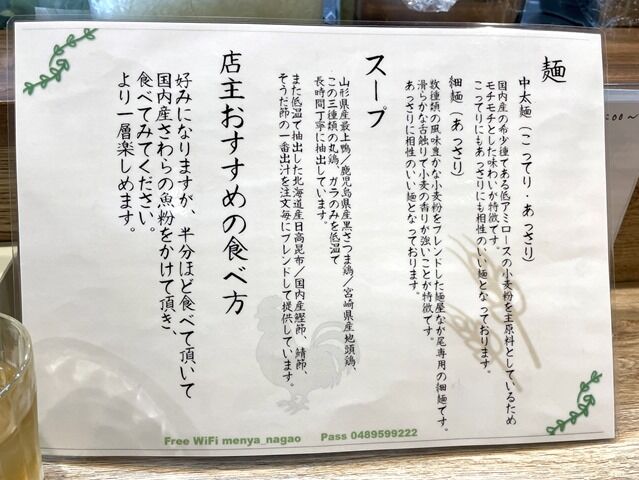 麺
中太麺（こってり・あっさり）
国内産の希少種である低アミロースの小麦粉を主原料としているため
モチモチとした味わいが特徴です。
こってりにもあっさりにも相性のいい麺となっております。
細麺（あっさり）
数種類の風味豊かな小麦粉をブレンドした麺屋なか尾専用の細麺です。
滑らかな舌触りで小麦の香りが強いことが特徴です。
あっさりに相性のいい麺となっております。
スープ
山形県産最上鴨／鹿児島県産黒さつま鶏／宮崎県産地頭鶏、
この三種類の丸鶏、ガラのみを低温で
長時間丁寧に抽出しています。
また低温で抽出した北海道産日高昆布／国内産鰹節、鯖節、
そうだ節の一番出汁を注文毎にブレンドして提供しています。
店主おすすめの食べ方
好みになりますが、半分ほど食べて頂いて
国内産さわらの魚粉をかけて頂き、
食べてみてください。
より一層楽しめます。
Free WiFi menya_nagao Pass 0489599222